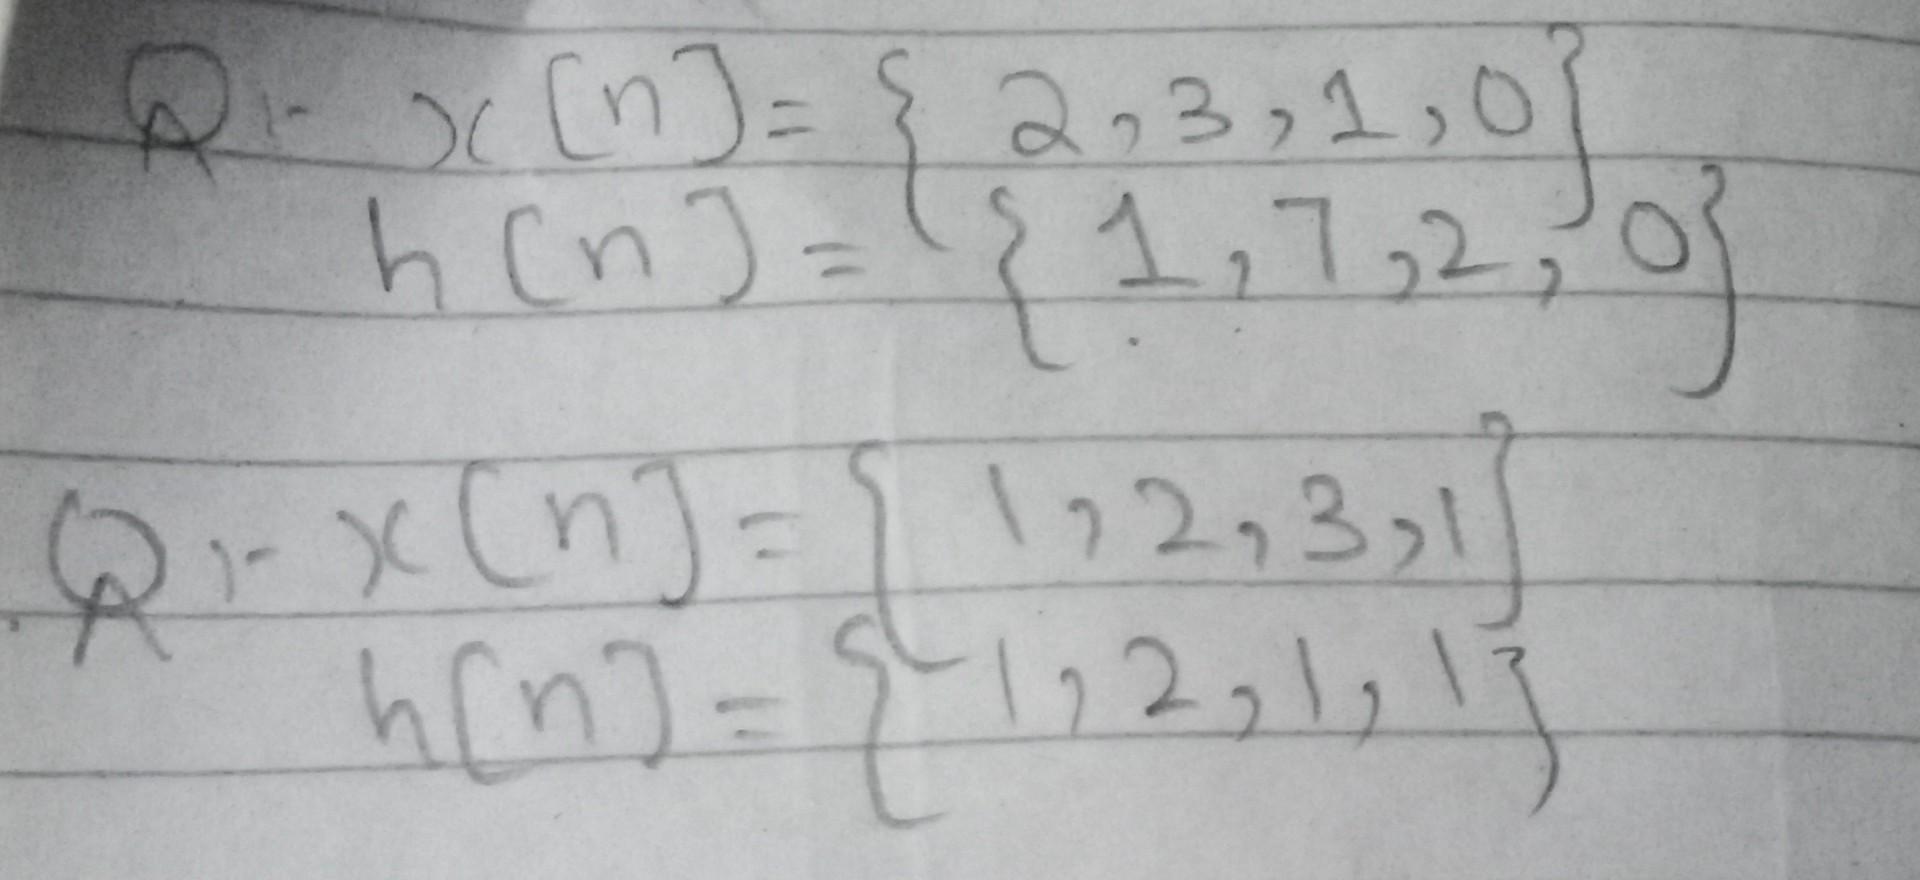 Q:- x[n] = { 2, 3, 1, 0}
h[n] = { 1, 7, 2, 0}
Q:- x[n] = { 1, 2, 3, 1}
h[n] = { 1, 2, 1, 1}